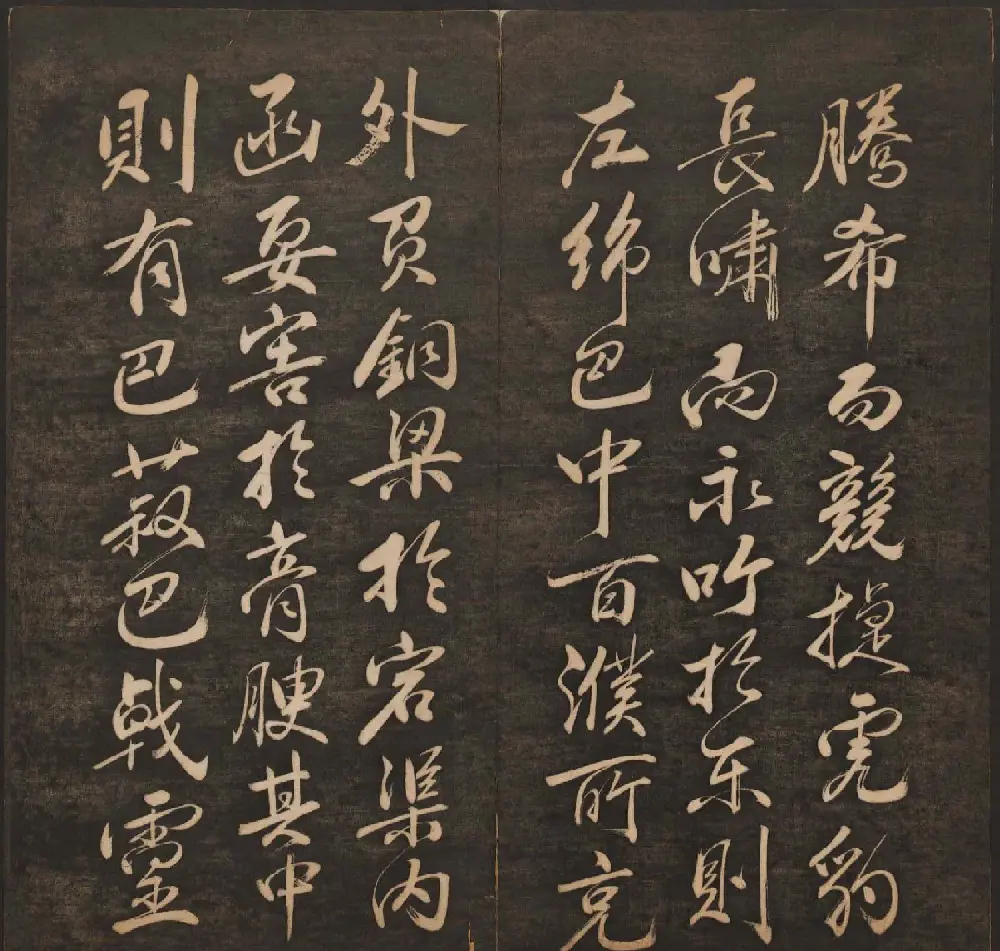 騰希而競捷虎豹
長嘯而永吟於東則
左綿巴中百濮所充
外負銅梁於宕渠內
函要害於膏腴其中
則有巴菽巴戟靈